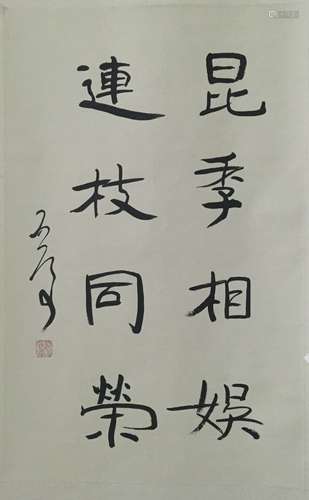 昆季相娛
連枝同榮